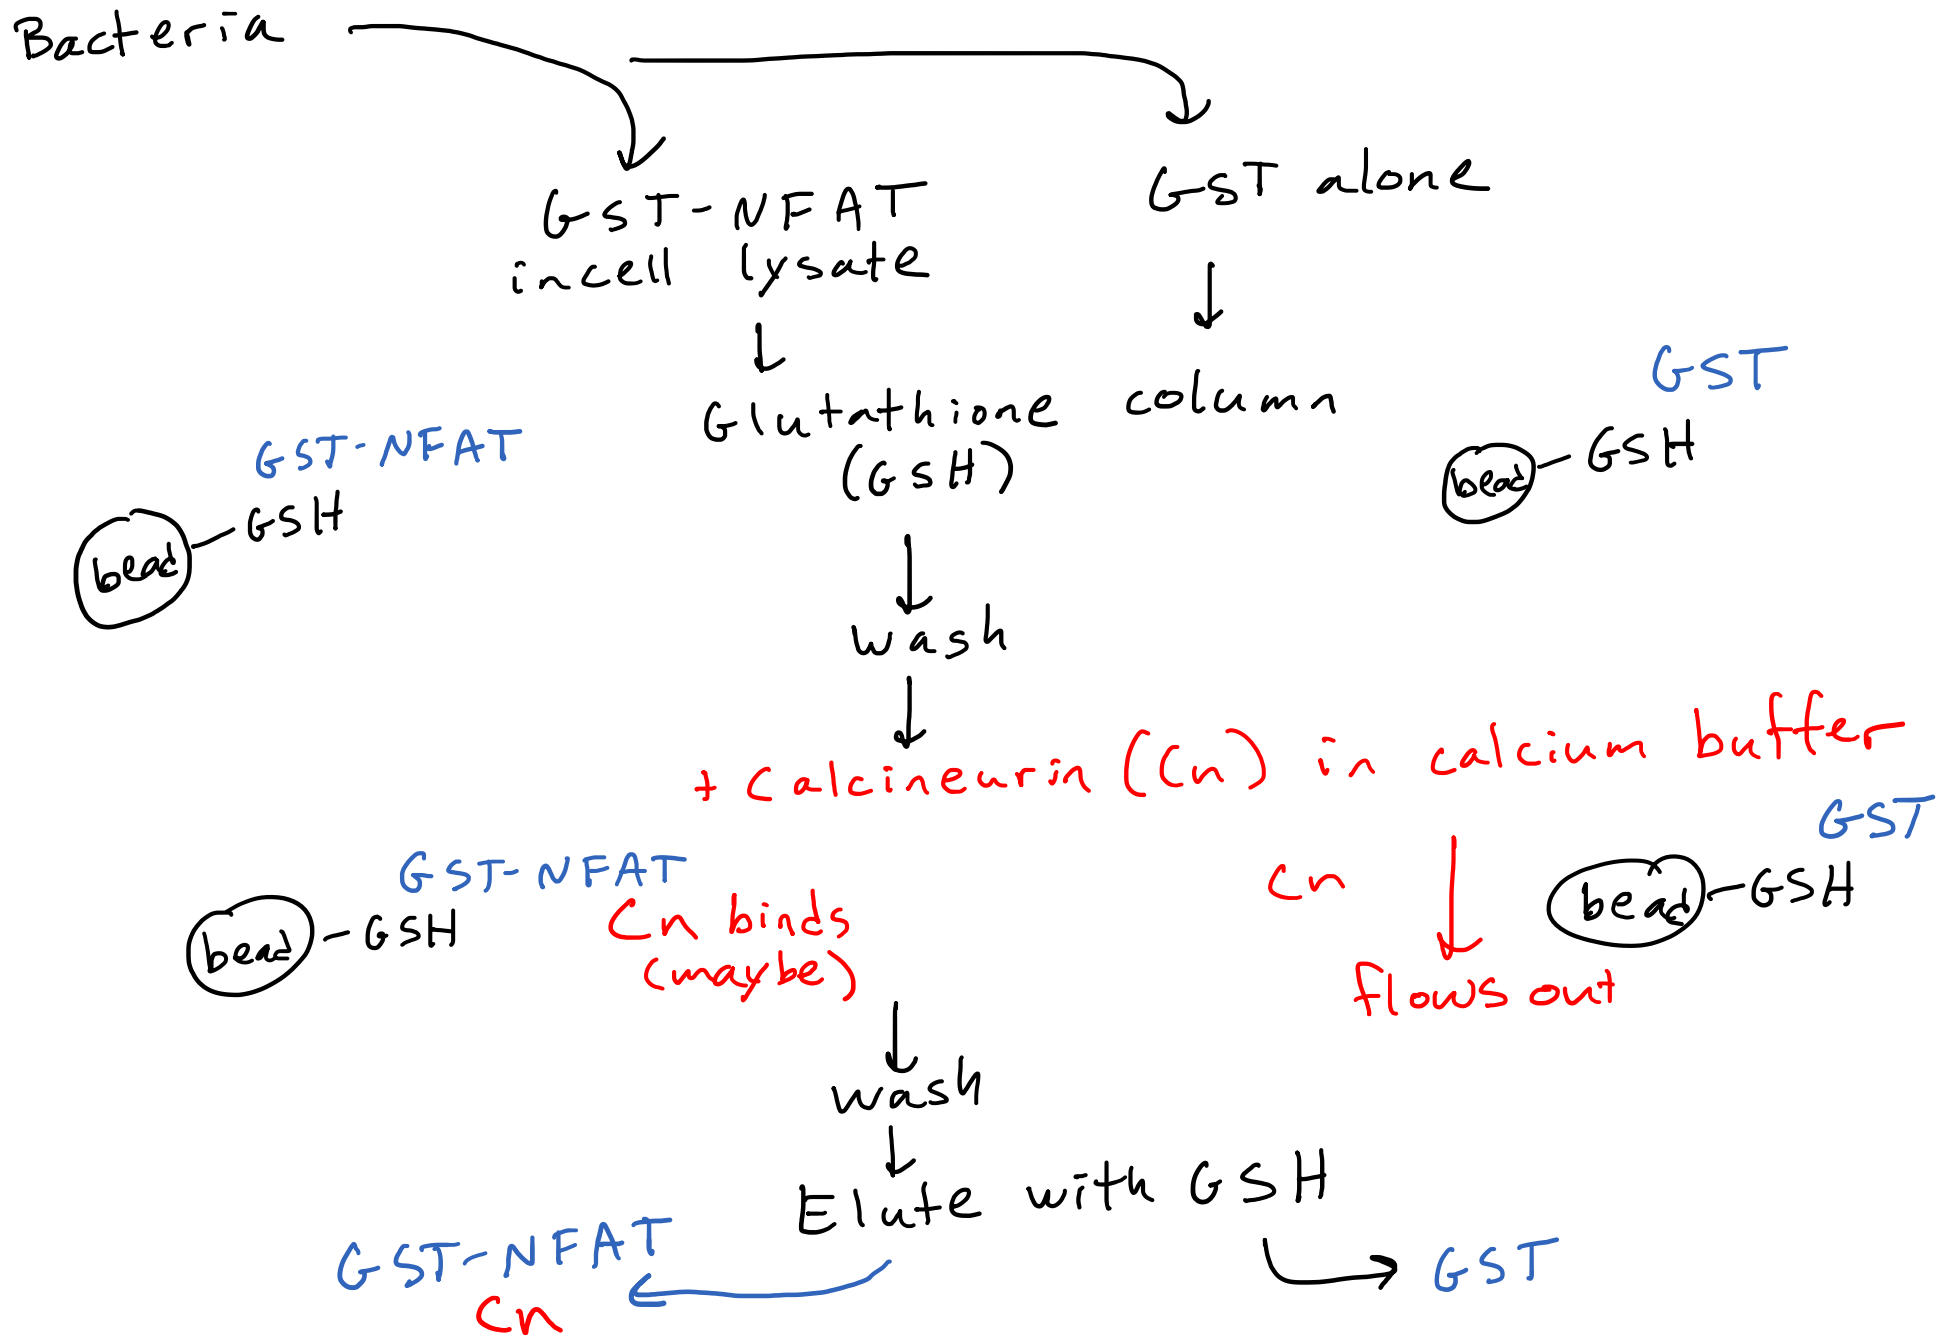 Bacteria
GST-NFAT
in cell lysate
GST alone
Glutathione column
(GSH)
GST-NFAT
bead
GSH
GST
bead
GSH
wash
+ Calcineurin (Cn) in calcium buffer
GST-NFAT
bead
GSH
Cn binds
(maybe)
Cn
flows out
GST
bead
GSH
wash
Elute with GSH
GST-NFAT
Cn
GST